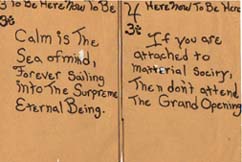 3 To Be Here Now To Be
3
Calm is The
Sea of mind,
Forever Sailing
into The Surpreme
Eternal Being.
4 Here Now To Be Here
3
If you are
attached to
material Sociry,
Then don't attend
The Grand Opening